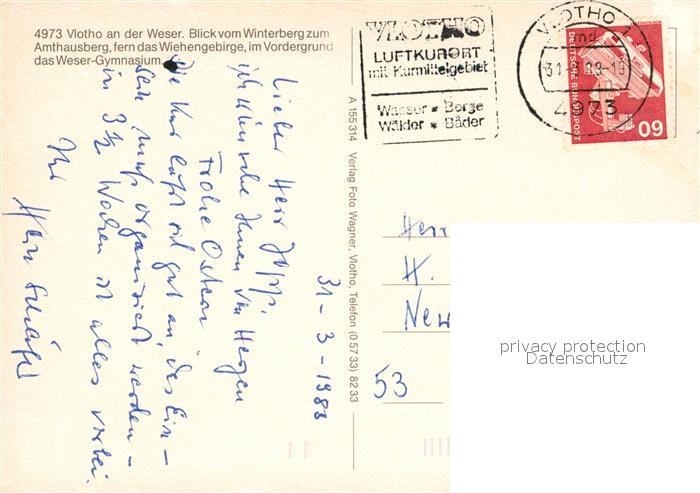 4973 Vlotho an der Weser. Blick vom Winterberg zum
Amthausberg, fern das Wiehengebirge, im Vordergrund
das Weser-Gymnasium
VLOTHO
LUFTKURORT
mit Kurmittelgebiet
Wasser * Berge
Wälder * Bäder
VLOTHO 1
31
4973
DEUTSCHE BUNDESPOST
60
A 155 314 Verlag Foto Wagner, Vlotho, Telefon (0 57 33) 82 33
31-3-1988
Lieber Herr
ich wünsche Ihnen von Herzen
Frohe Ostern
Die Kur läßt sich gut an, das Ein-
muß organisiert werden -
in 3½ Wochen ist alles vorbei.
Ihr
Herr
H.
New
53
privacy protection
Datenschutz